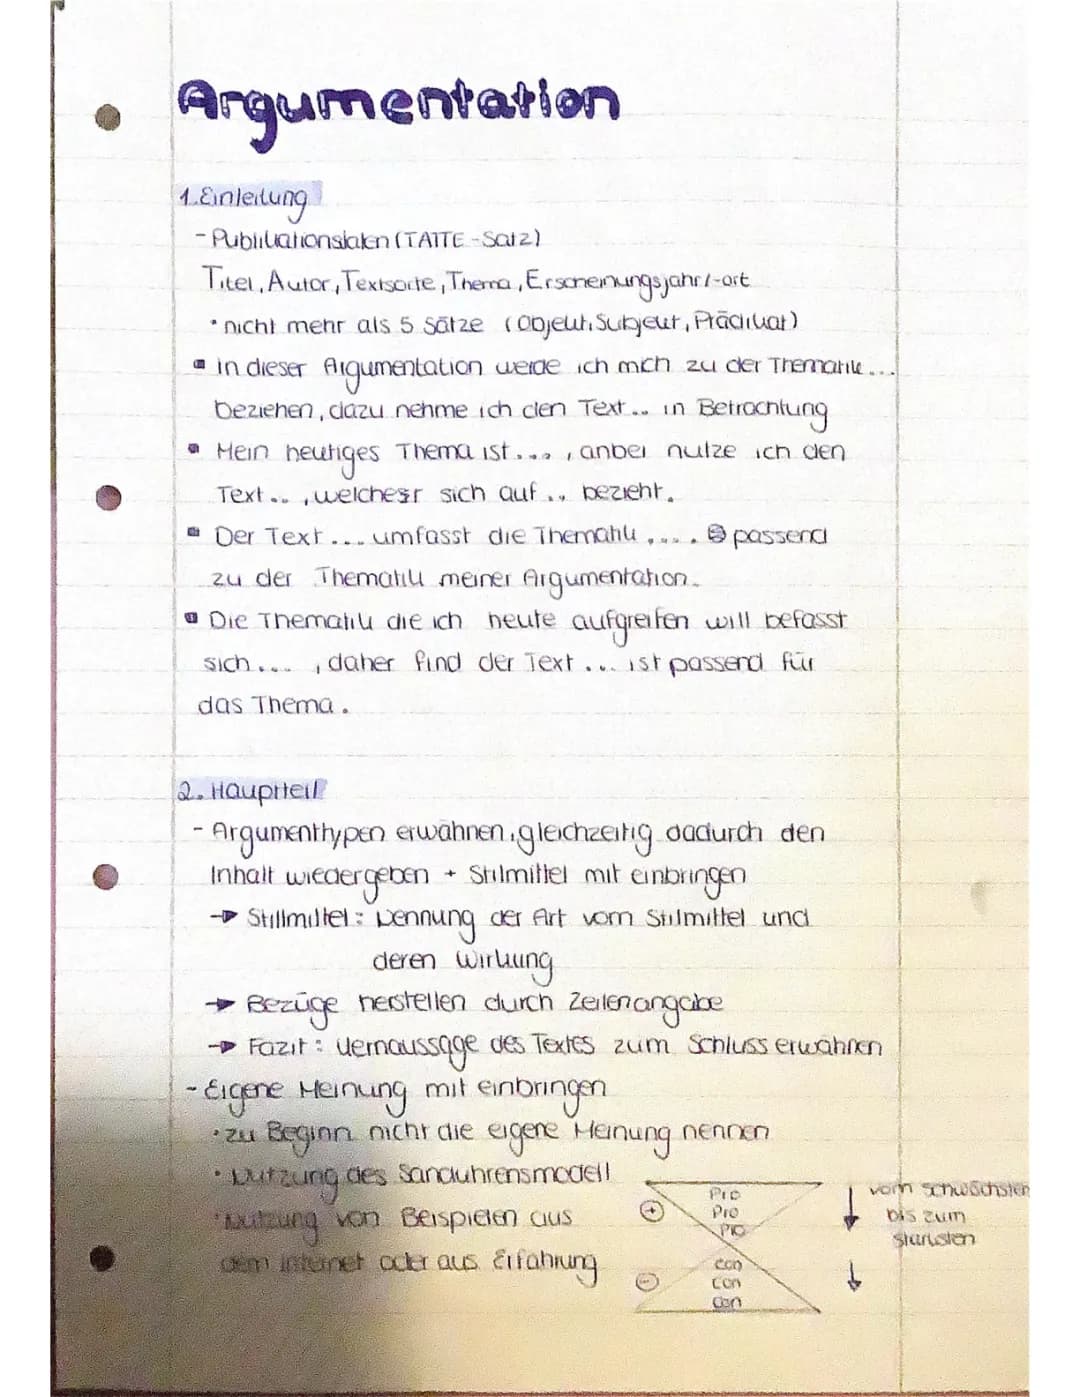 Argumentation
1. Einleitung
- Publikationsdaten (TATTE-Satz)
Titel, Autor, Textsorte, Thema, Erscheinungsjahr/-ort
• nicht mehr als 5 Sätze (Objekt, Subjekt, Prädikat)
▪ in dieser Argumentation werde ich mich zu der Thematik...
beziehen, dazu nehme ich den Text... in Betrachtung
▪ Mein heutiges Thema ist..., anbei nutze ich den
Text..., welches sich auf... bezieht.
▪ Der Text... umfasst die Thematik.... passend
zu der Thematik meiner Argumentation.
▪ Die Thematik die ich heute aufgreifen will befasst
sich..., daher find der Text... ist passend für
das Thema.
2. Hauptteil
- Argumenttypen erwähnen, gleichzeitig dadurch den
Inhalt wiedergeben + Stilmittel mit einbringen
→ Stillmittel: Nennung der Art vom Stilmittel und
deren Wirkung
→ Bezüge herstellen durch Zeilenangabe
→ Fazit: Kernaussage des Textes zum Schluss erwähnen
- Eigene Meinung mit einbringen
• zu Beginn nicht die eigene Meinung nennen
• Nutzung des Sanduhrensmodell
• Nutzung von Beispielen aus
dem Internet oder aus Erfahrung
+
Pro
Pro
Pro
↓ vom schwächsten
bis zum
stärksten
-
con
con
con
↓